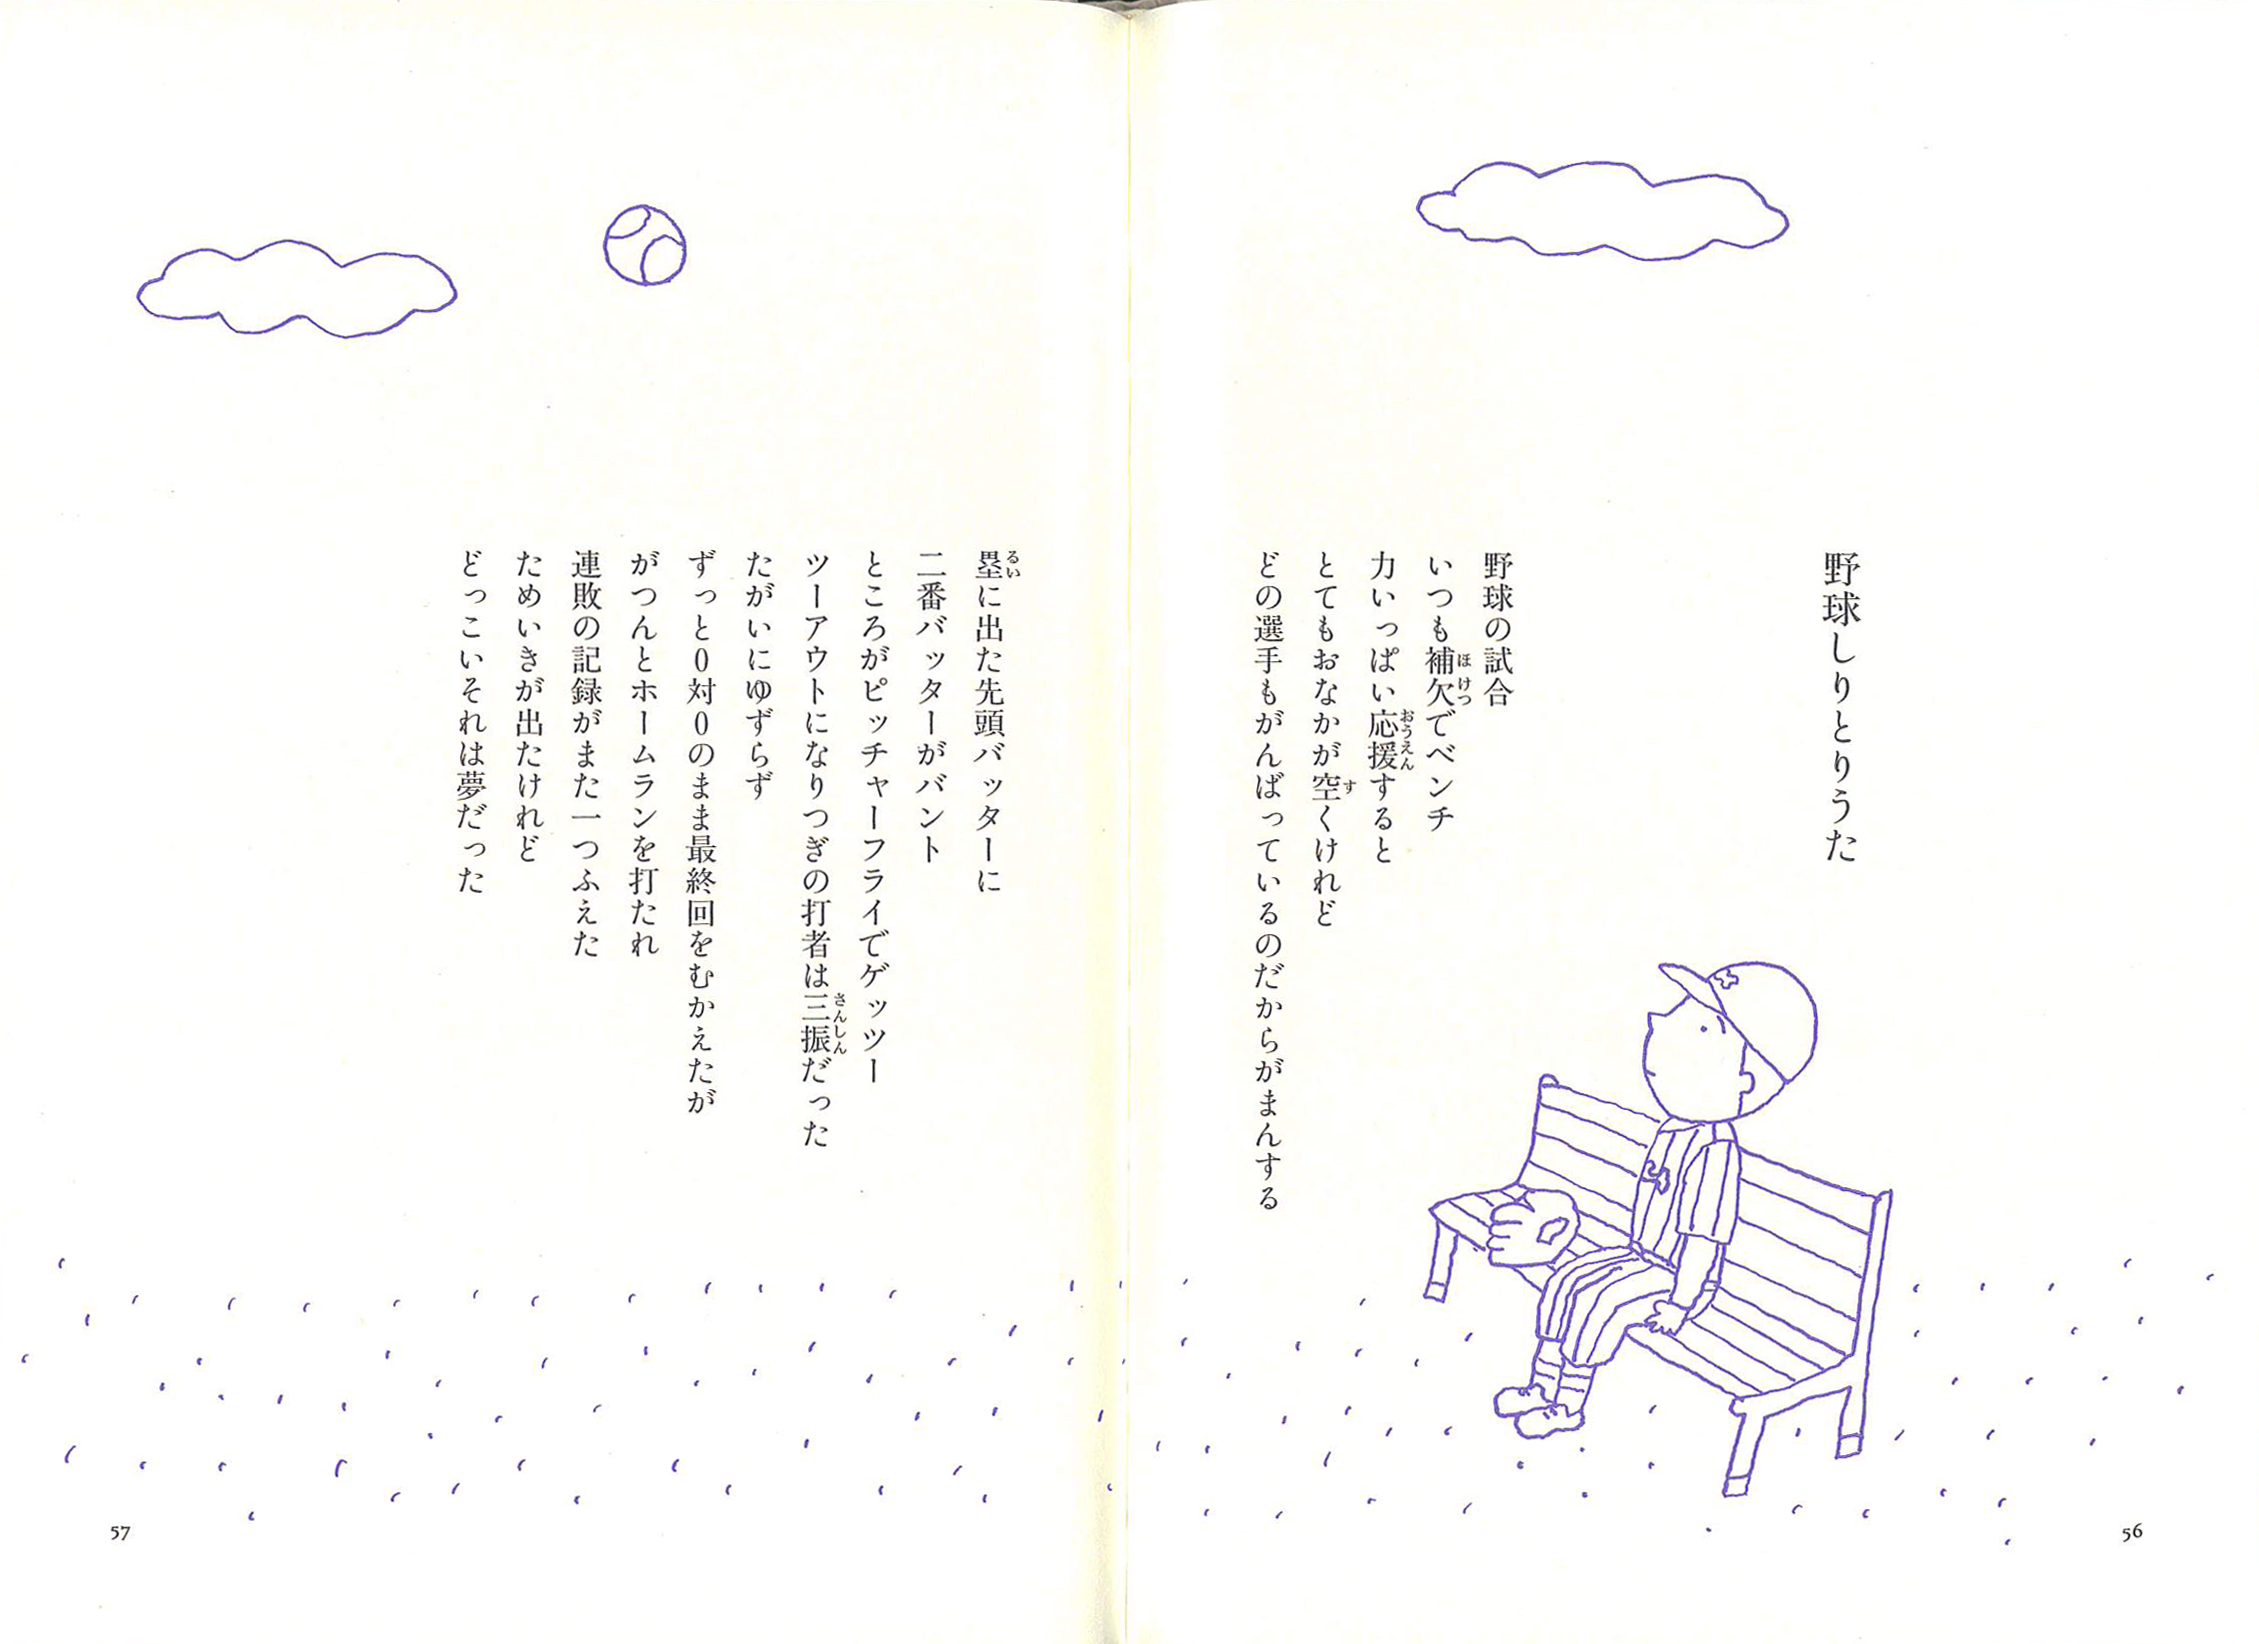 野球しりとりうた
野球の試合
いつも補欠でベンチ
力いっぱい応援すると
とてもおなかが空くけれど
どの選手もがんばっているのだからがまんする
56
塁に出た先頭バッターに
二番バッターがバント
ところがピッチャーフライでゲッツー
ツーアウトになりつぎの打者は三振だった
たがいにゆずらず
ずっと0対0のまま最終回をむかえたが
がつんとホームランを打たれ
連敗の記録がまた一つふえた
ためいきが出たけれど
どっこいそれは夢だった
57